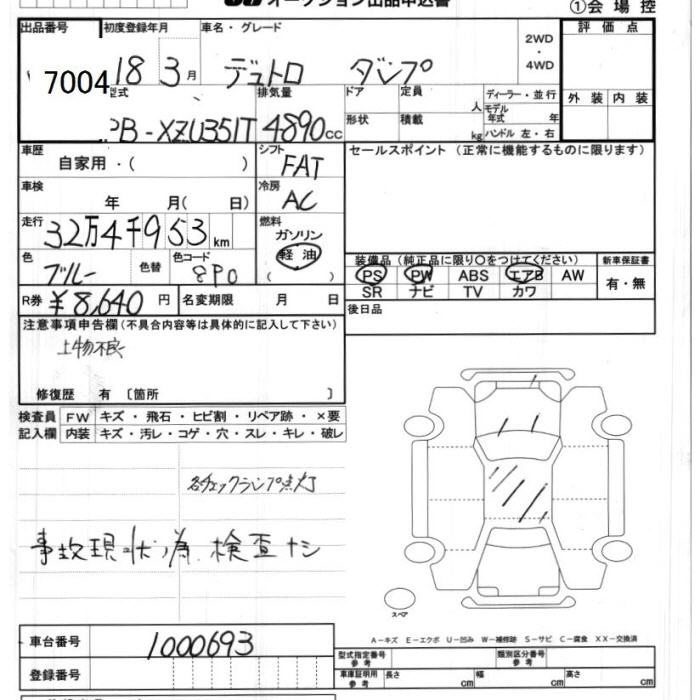 オークション出品申込書
①会場控
出品番号 初度登録年月 車名・グレード 2WD・4WD 評価点
7004 18 3月 デュトロ ダンプ
型式 排気量 ドア 定員 人 ディーラー・並行 外装 内装
形状 積載 kg モデル年式 年 ハンドル 左・右
PB-XZU351T 4890cc
車歴 シフト セールスポイント (正常に機能するものに限ります)
自家用・( ) FAT
車検 冷房
年 月( 日) AC
走行 燃料
32万4千953km ガソリン
軽油
( )
色 色替 色コード
ブルー 8P0
装備品 (純正品に限り〇をつけてください) 新車保証書
PS PW ABS エアB AW 有・無
SR ナビ TV カワ
R券 ¥8,640円 名変期限 月 日
後日品
注意事項申告欄(不具合内容等は具体的に記入して下さい)
上物不良
修復歴 有 〔箇所 〕
検査員 FW キズ・飛石・ヒビ割・リペア跡・×要
記入欄 内装 キズ・汚レ・コゲ・穴・スレ・キレ・破レ
各チェックランプ点灯
事故現状の為 検査ナシ
スペア
A-キズ E-エクボ U-凹み W-補修跡 S-サビ C-腐食 XX-交換済
車台番号 1000693
型式指定番号 参考 類別区分番号 参考
登録番号
車庫証明用 参考 長さ cm 幅 cm 高さ cm